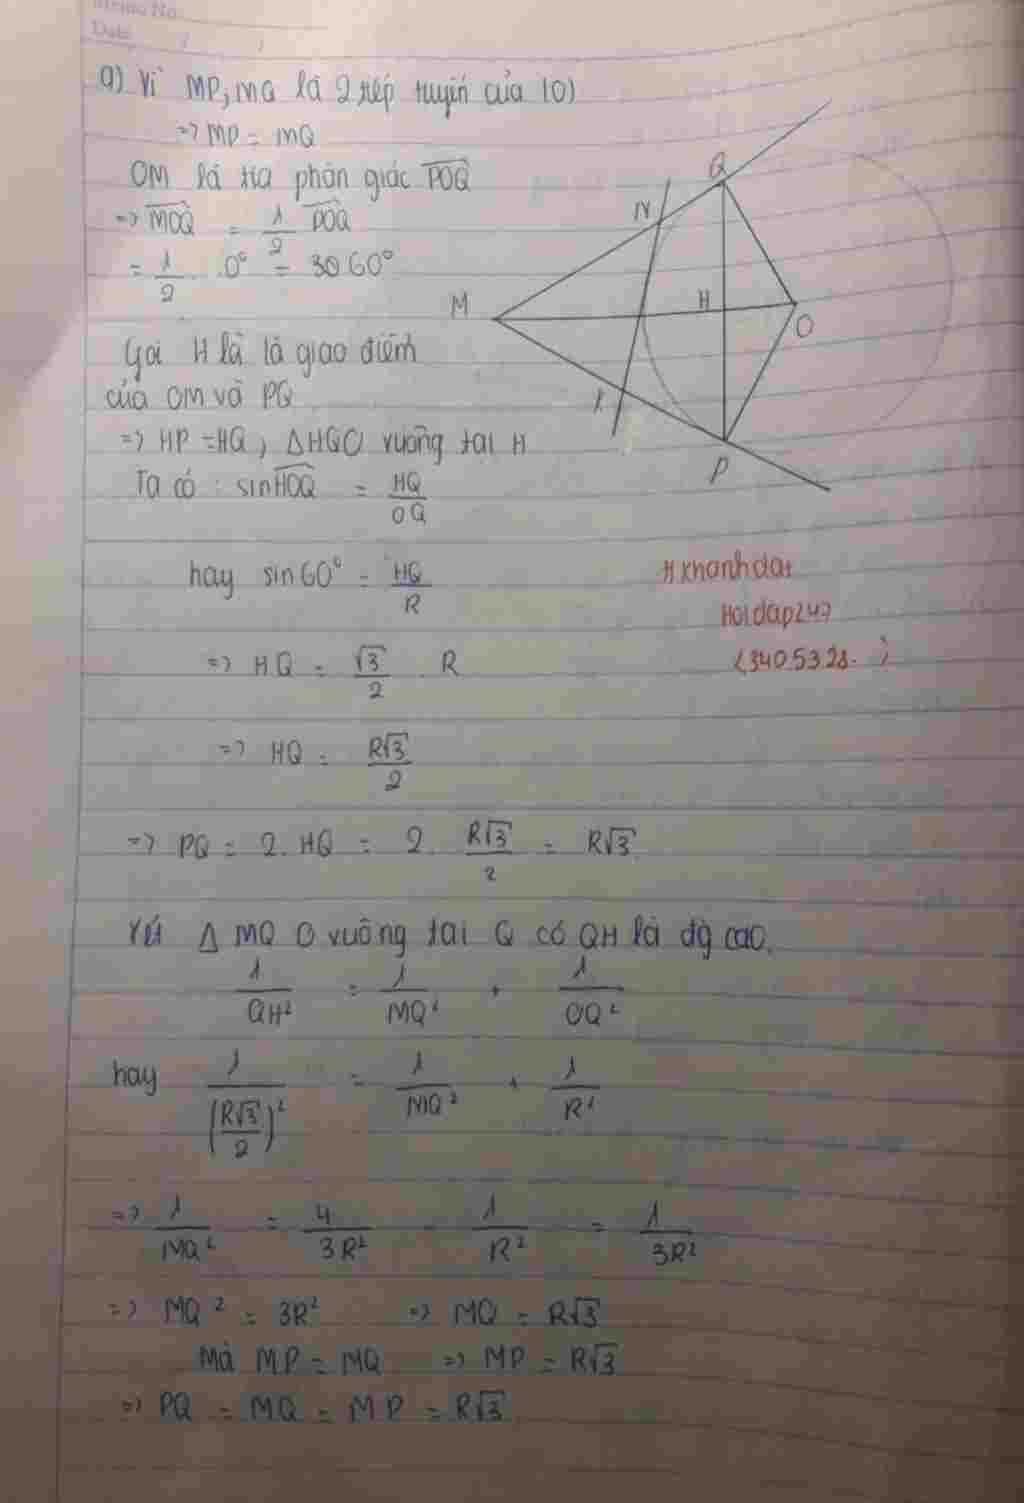 Memo No
Date / /
a) Vì MP, MQ là 2 tiếp tuyến của (O)
=> MP = MQ
OM là tia phân giác \widehat{POQ}
=> \widehat{MOQ} = \frac{1}{2} \widehat{POQ}
= \frac{1}{2} . 0° = 3060°
Gọi H là là giao điểm
của OM và PQ
=> HP = HQ, ΔHQO vuông tại H
Ta có : sin\widehat{HOQ} = \frac{HQ}{OQ}
hay sin60° = \frac{HQ}{R}
=> HQ = \frac{√3}{2} . R
=> HQ = \frac{R√3}{2}
=> PQ = 2. HQ = 2. \frac{R√3}{2} = R√3
Xét Δ MQO vuông tại Q có QH là đg cao.
\frac{1}{QH²} = \frac{1}{MQ²} + \frac{1}{OQ²}
hay \frac{1}{(\frac{R√3}{2})²} = \frac{1}{MQ²} + \frac{1}{R²}
=> \frac{1}{MQ²} = \frac{4}{3R²} - \frac{1}{R²} = \frac{1}{3R²}
=> MQ² = 3R² => MQ = R√3
Mà MP = MQ => MP = R√3
=> PQ = MQ = MP = R√3
Q
N
M
H
O
P
Hkhanhdat
Hoidap247
(3405328. )